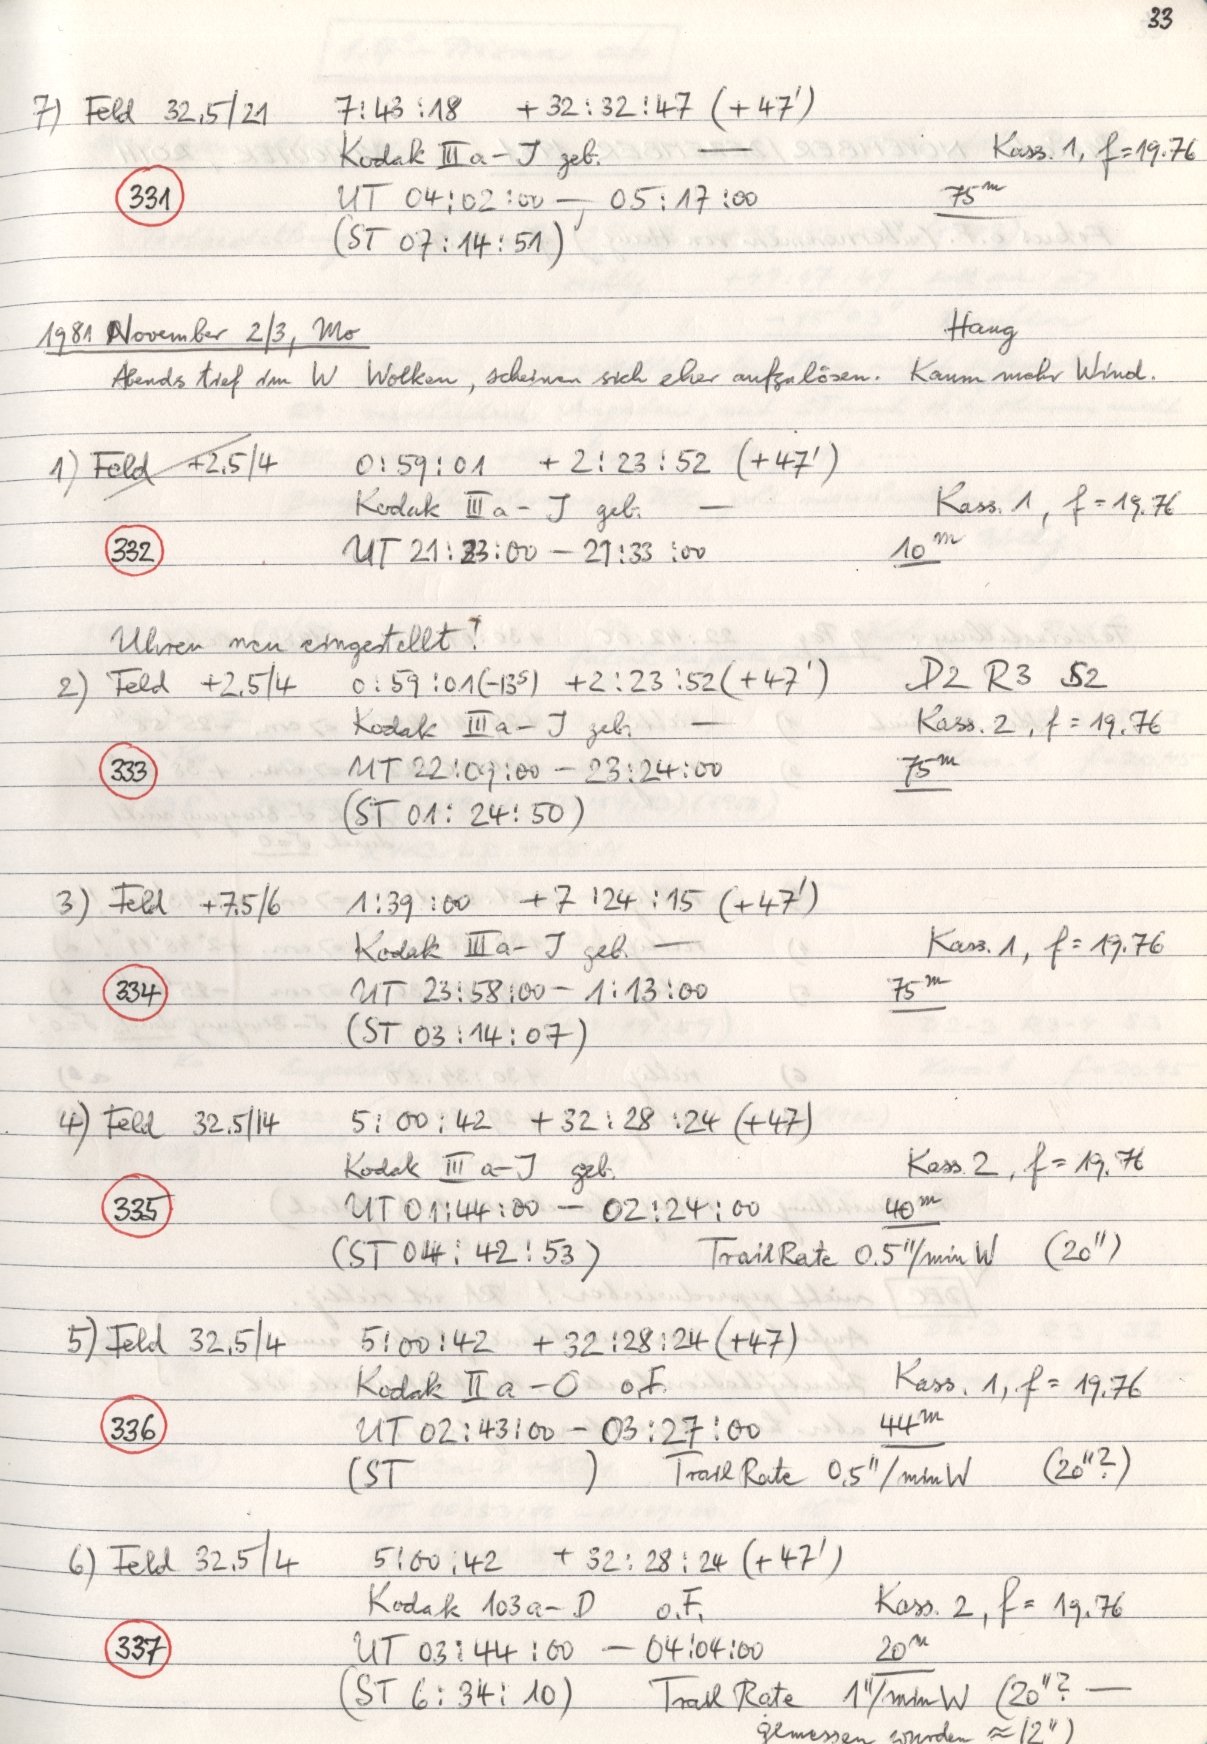 33
7) Feld 32.5/21 7:43:18 +32:32:47 (+47')
Kodak IIIa-J geb. — Kass. 1, f=19.76
331 UT 04:02:00 — 05:17:00 75m
(ST 07:14:51)
1981 November 2/3, Mo Haug
Abends tief im W Wolken, scheinen sich eher aufzulösen. Kaum mehr Wind.
1) Feld +2.5/4 0:59:01 +2:23:52 (+47')
Kodak IIIa-J geb. — Kass. 1, f=19.76
332 UT 21:23:00 — 21:33:00 10m
Uhren neu eingestellt!
2) Feld +2.5/4 0:59:01(-13s) +2:23:52(+47') D2 R3 S2
Kodak IIIa-J geb. — Kass. 2, f=19.76
333 UT 22:09:00 — 23:24:00 75m
(ST 01:24:50)
3) Feld +7.5/6 1:39:00 +7:24:15 (+47')
Kodak IIIa-J geb. — Kass. 1, f=19.76
334 UT 23:58:00 — 1:13:00 75m
(ST 03:14:07)
4) Feld 32.5/14 5:00:42 +32:28:24 (+47)
Kodak IIIa-J geb. Kass. 2, f=19.76
335 UT 01:44:00 — 02:24:00 40m
(ST 04:42:53) Trail Rate 0.5"/min W (20")
5) Feld 32.5/4 5:00:42 +32:28:24 (+47)
Kodak IIa-O o.F. Kass. 1, f=19.76
336 UT 02:43:00 — 03:27:00 44m
(ST ) Trail Rate 0.5"/min W (20"?)
6) Feld 32.5/4 5:00:42 +32:28:24 (+47')
Kodak 103a-D o.F. Kass. 2, f=19.76
337 UT 03:44:00 — 04:04:00 20m
(ST 6:34:10) Trail Rate 1"/min W (20"? —
gemessen wurden ≈12")